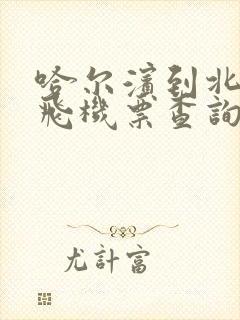 哈尔濱到北
飛機票查詢
尤計富